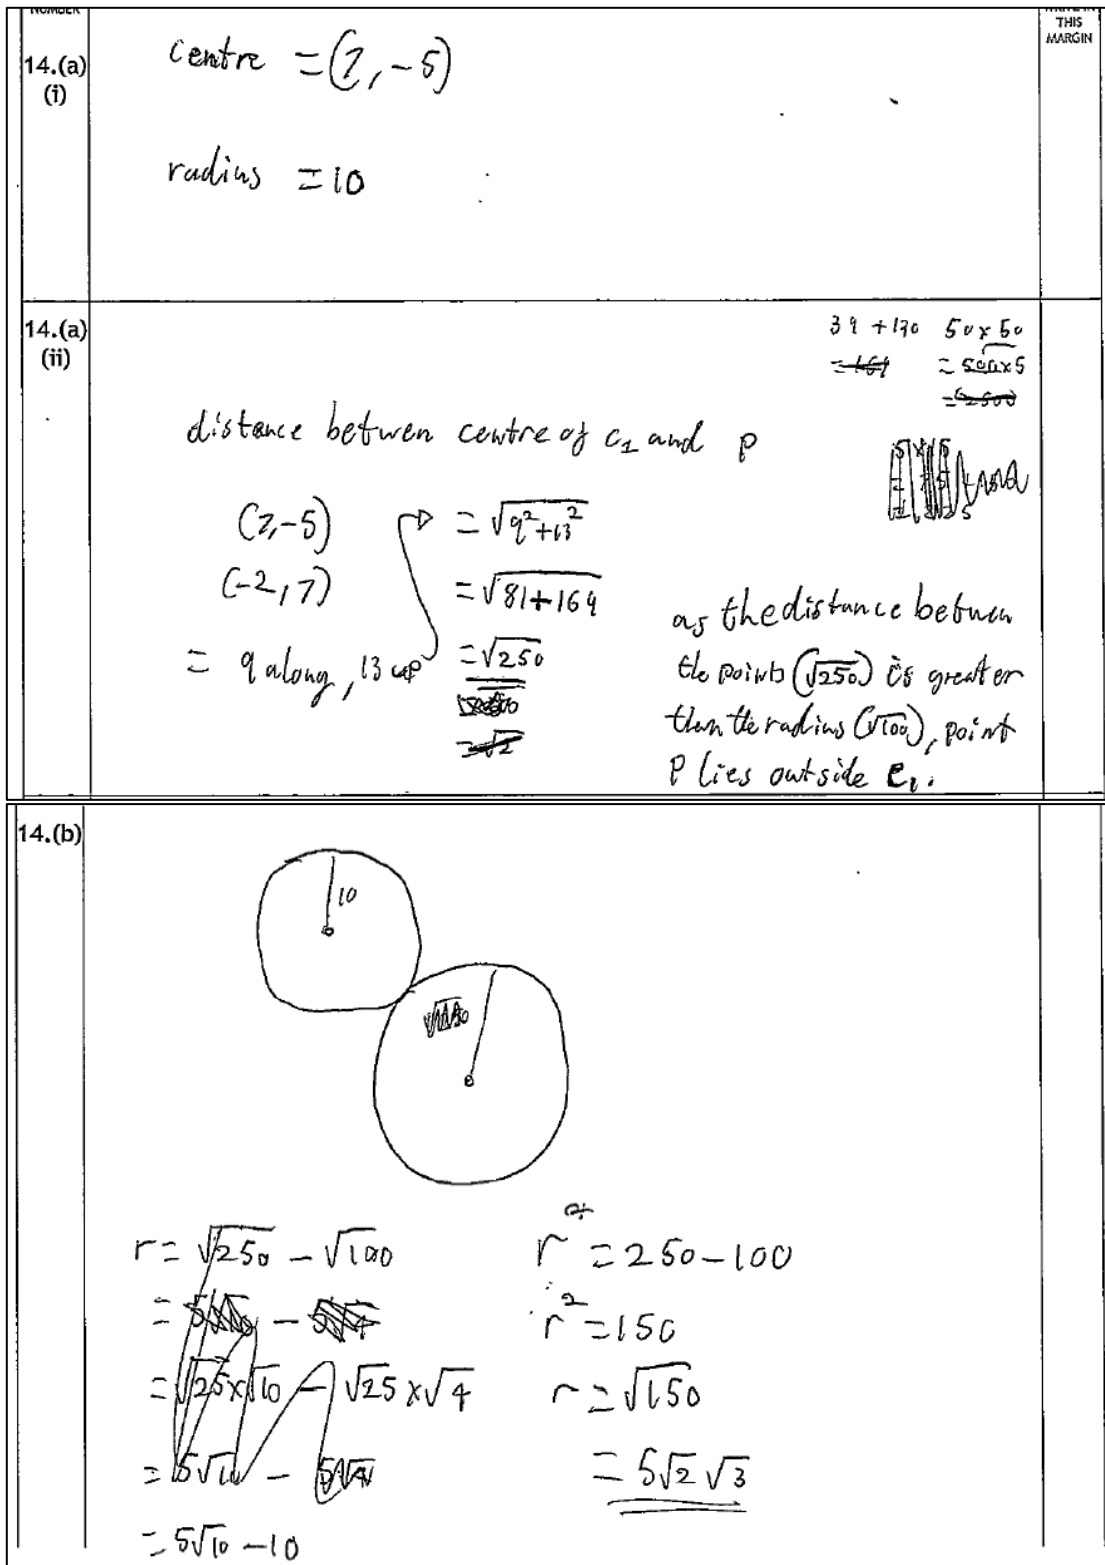 NUMBER
THIS
MARGIN
14.(a)
(i)
centre = (7, -5)
radius = 10
14.(a)
(ii)
39 + 130
= 169
50 x 50
= 500x5
= 2500
distance betwren centre of c₁ and p
(7,-5)
(-2,7)
= 9 along, 13 up
= √9²+13²
= √81+169
= √250
= √2
as the distance betwen
the points (√250) is greater
than the radius (√100), point
P lies outside C₁.
14.(b)
10
r = √250 - √100
= √25x√10 - √25 x √4
= 5√10 -
= 5√10 - 10
r² = 250-100
r² = 150
r = √150
= 5√2 √3